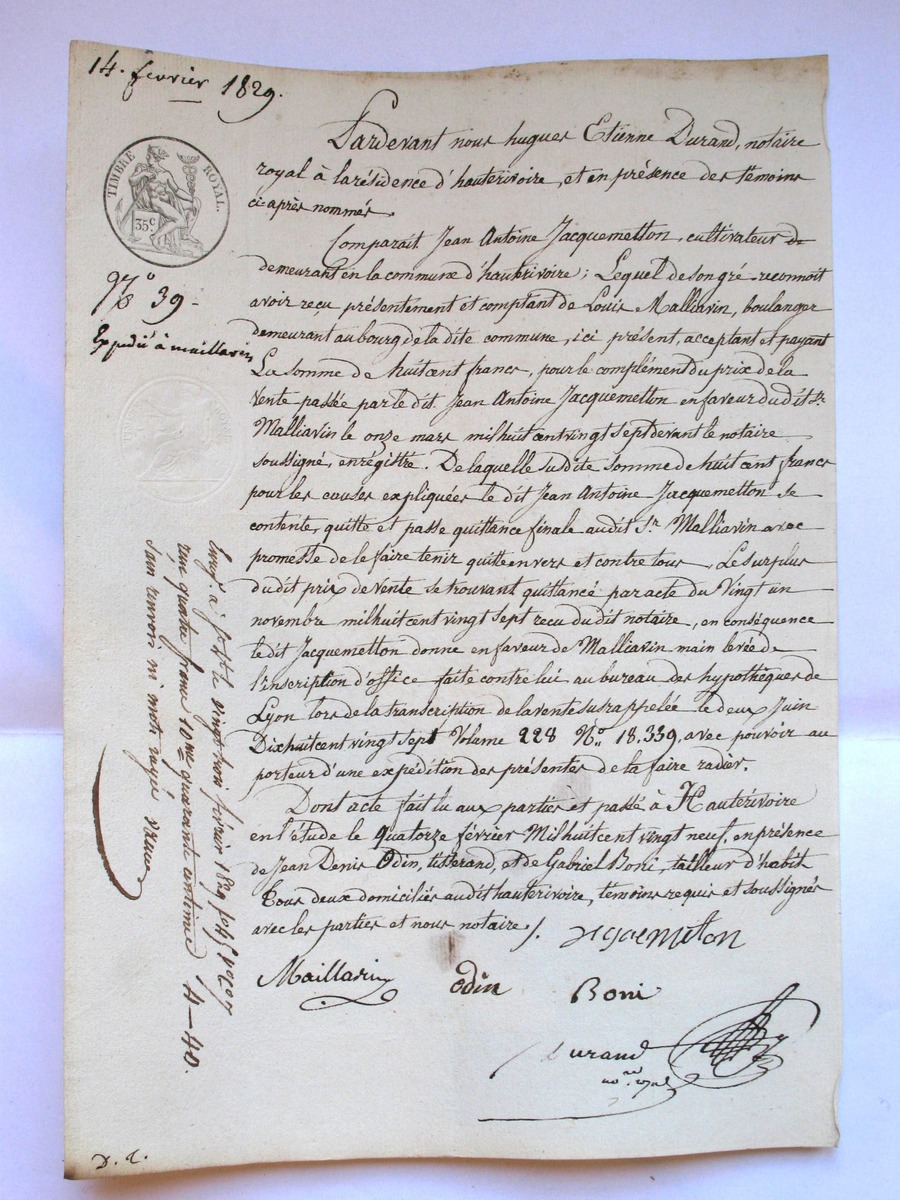 14. février 1829.
TIMBRE ROYAL.
35c
No 39
Expédié à maillavin
Pardevant nous hugues Etienne Durand, notaire
royal à la résidence d'hauterivoire, et en présence des témoins
ci-après nommés.
Comparait Jean Antoine Jacquemetton, cultivateur de
demeurant en la commune d'hauterivoire; Lequel de son gré reconnoit
avoir reçu présentement et comptant de Louis Malliavin, boulanger
demeurant au bourg de la dite commune, ici présent, acceptant et payant
La somme de huit cent francs, pour le complément du prix de la
Vente passée par le dit Jean Antoine Jacquemetton en faveur du dit Sr.
Malliavin le onze mars mil huit cent vingt sept devant le notaire
soussigné, enrégistré. De laquelle susdite somme de huit cent francs
pour les causes expliquées le dit Jean Antoine Jacquemetton se
contente, quitte et passe quittance finale audit Sr. Malliavin avec
promesse de le faire tenir quitte envers et contre tous. Le surplus
du dit prix de vente se trouvant quittancé par acte du Vingt un
novembre mil huit cent vingt sept reçu du dit notaire, en conséquence
le dit Jacquemetton donne en faveur de Malliavin main levée de
l'inscription d'office faite contre lui au bureau des hypothèques de
Lyon lors de la transcription de la vente susrappelée le deux Juin
Dix huit cent vingt sept Volume 228 No. 18,339, avec pouvoir au
porteur d'une expédition des présentes de la faire radier.
Dont acte fait lu aux parties et passé à Hauterivoire
en l'étude le quatorze février Mil huit cent vingt neuf, en présence
de Jean Denis Odin, tisserand, et de Gabriel Boni, tailleur d'habit
Tous deux domiciliés audit hauterivoire, témoins requis et soussignés
avec les parties et nous notaire /.
Maillavin
Odin
Boni
Durand
nore royal
vingt trois février 1829
quatre francs 10me quarante centimes 4-40.
sans renvoi ni mots rayés